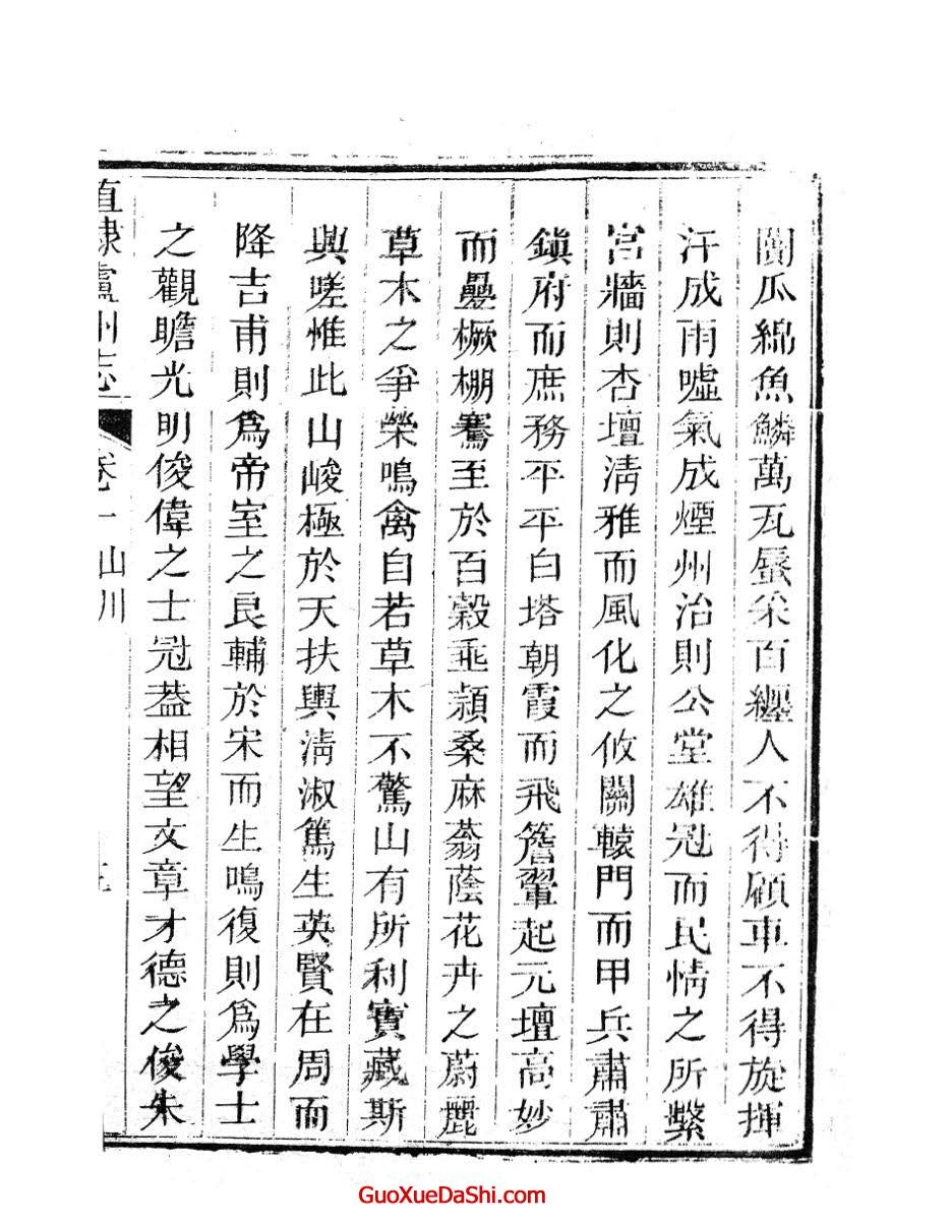 闠瓜綿魚鱗萬瓦蜃朵百纏人不得顧車不得旋揮
汗成雨噓氣成煙州治則公堂雄冠而民情之所繫
宮牆則杏壇淸雅而風化之攸關轅門而甲兵肅肅
鎮府而庶務平平白塔朝霞而飛簷翬起元壇高妙
而疊橛棚騫至於百榖埀穎桑麻蓊蔭花卉之蔚麗
草木之爭榮鳴禽自若草木不驚山有所利寶藏斯
興嗟惟此山峻極於天扶輿淸淑篤生英賢在周而
降吉甫則爲帝室之良輔於宋而生鳴復則爲學士
之觀瞻光明俊偉之士冠蓋相望文章才德之俊朱
直隸瀘州志 卷一 山川
GuoXueDaShi.com